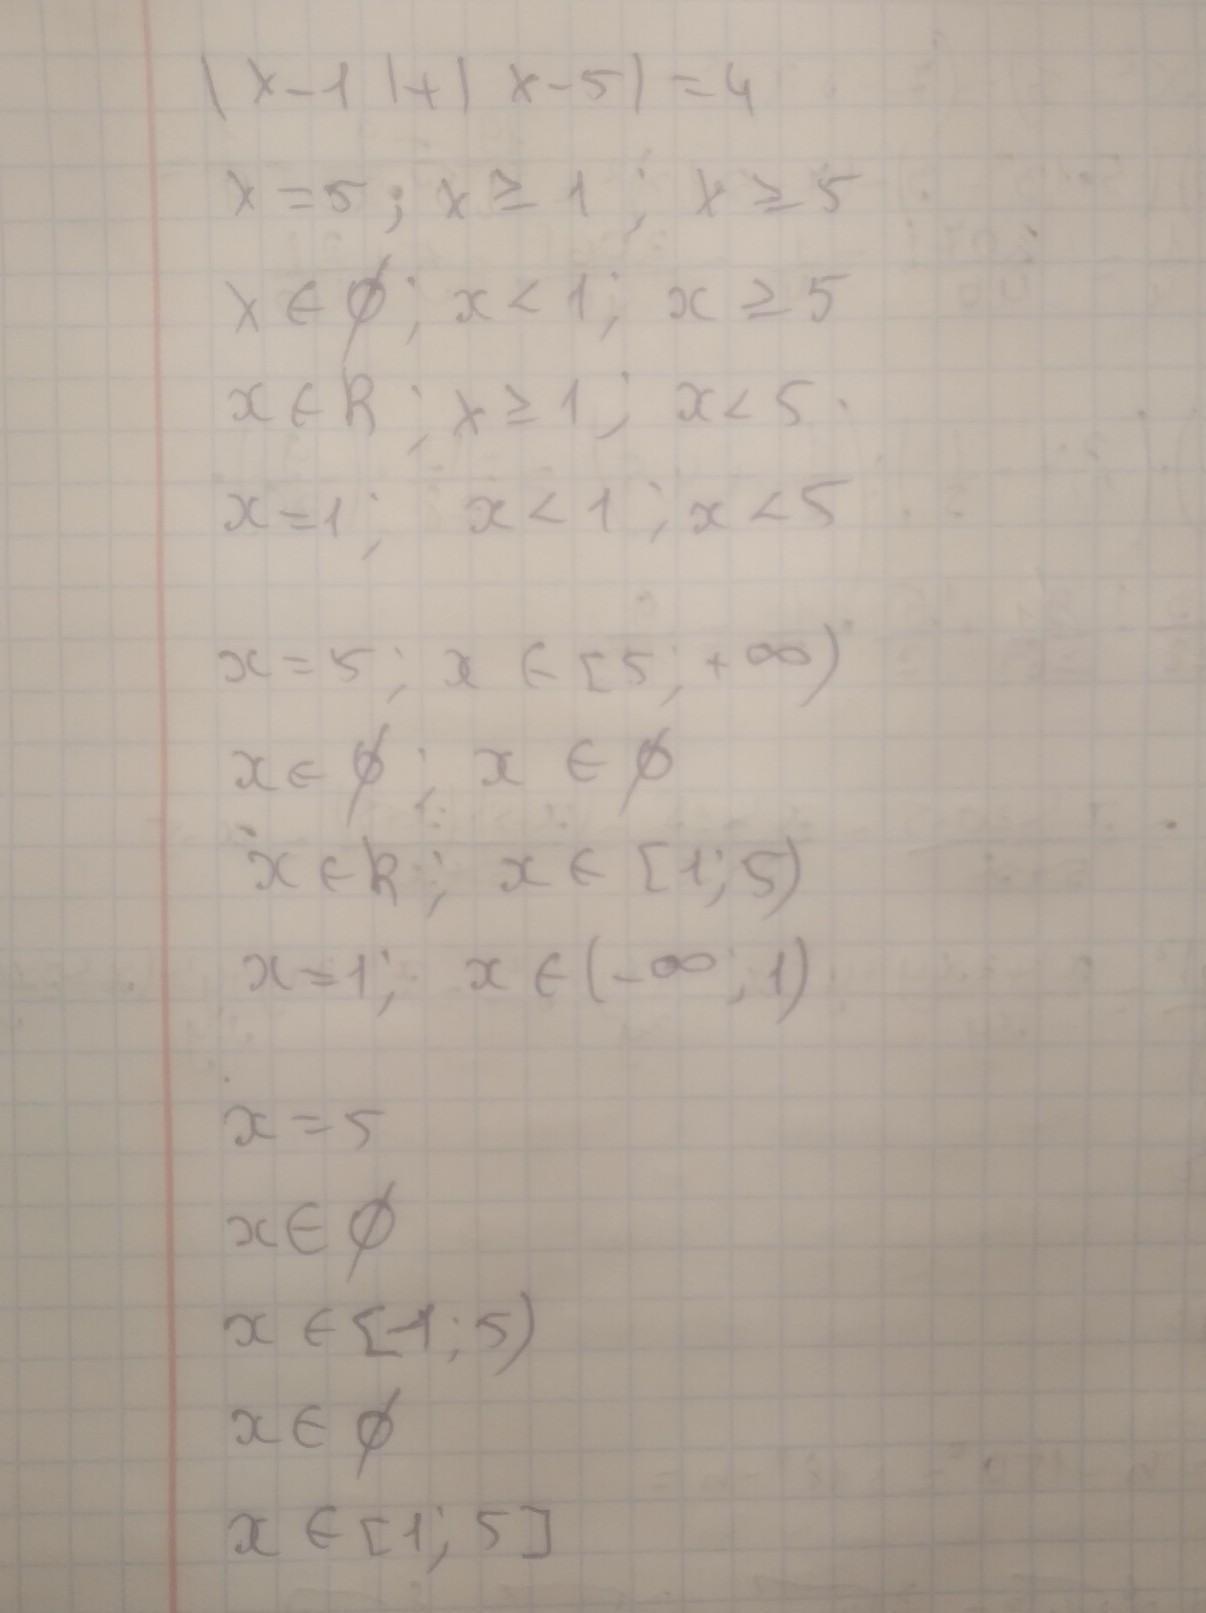 |x-1|+|x-5|=4
x=5; x≥1; x≥5
x∈∅; x<1; x≥5
x∈R; x≥1; x<5
x=1; x<1; x<5
x=5; x∈[5;+∞)
x∈∅; x∈∅
x∈R; x∈[1;5)
x=1; x∈(-∞;1)
x=5
x∈∅
x∈[1;5)
x∈∅
x∈[1;5]